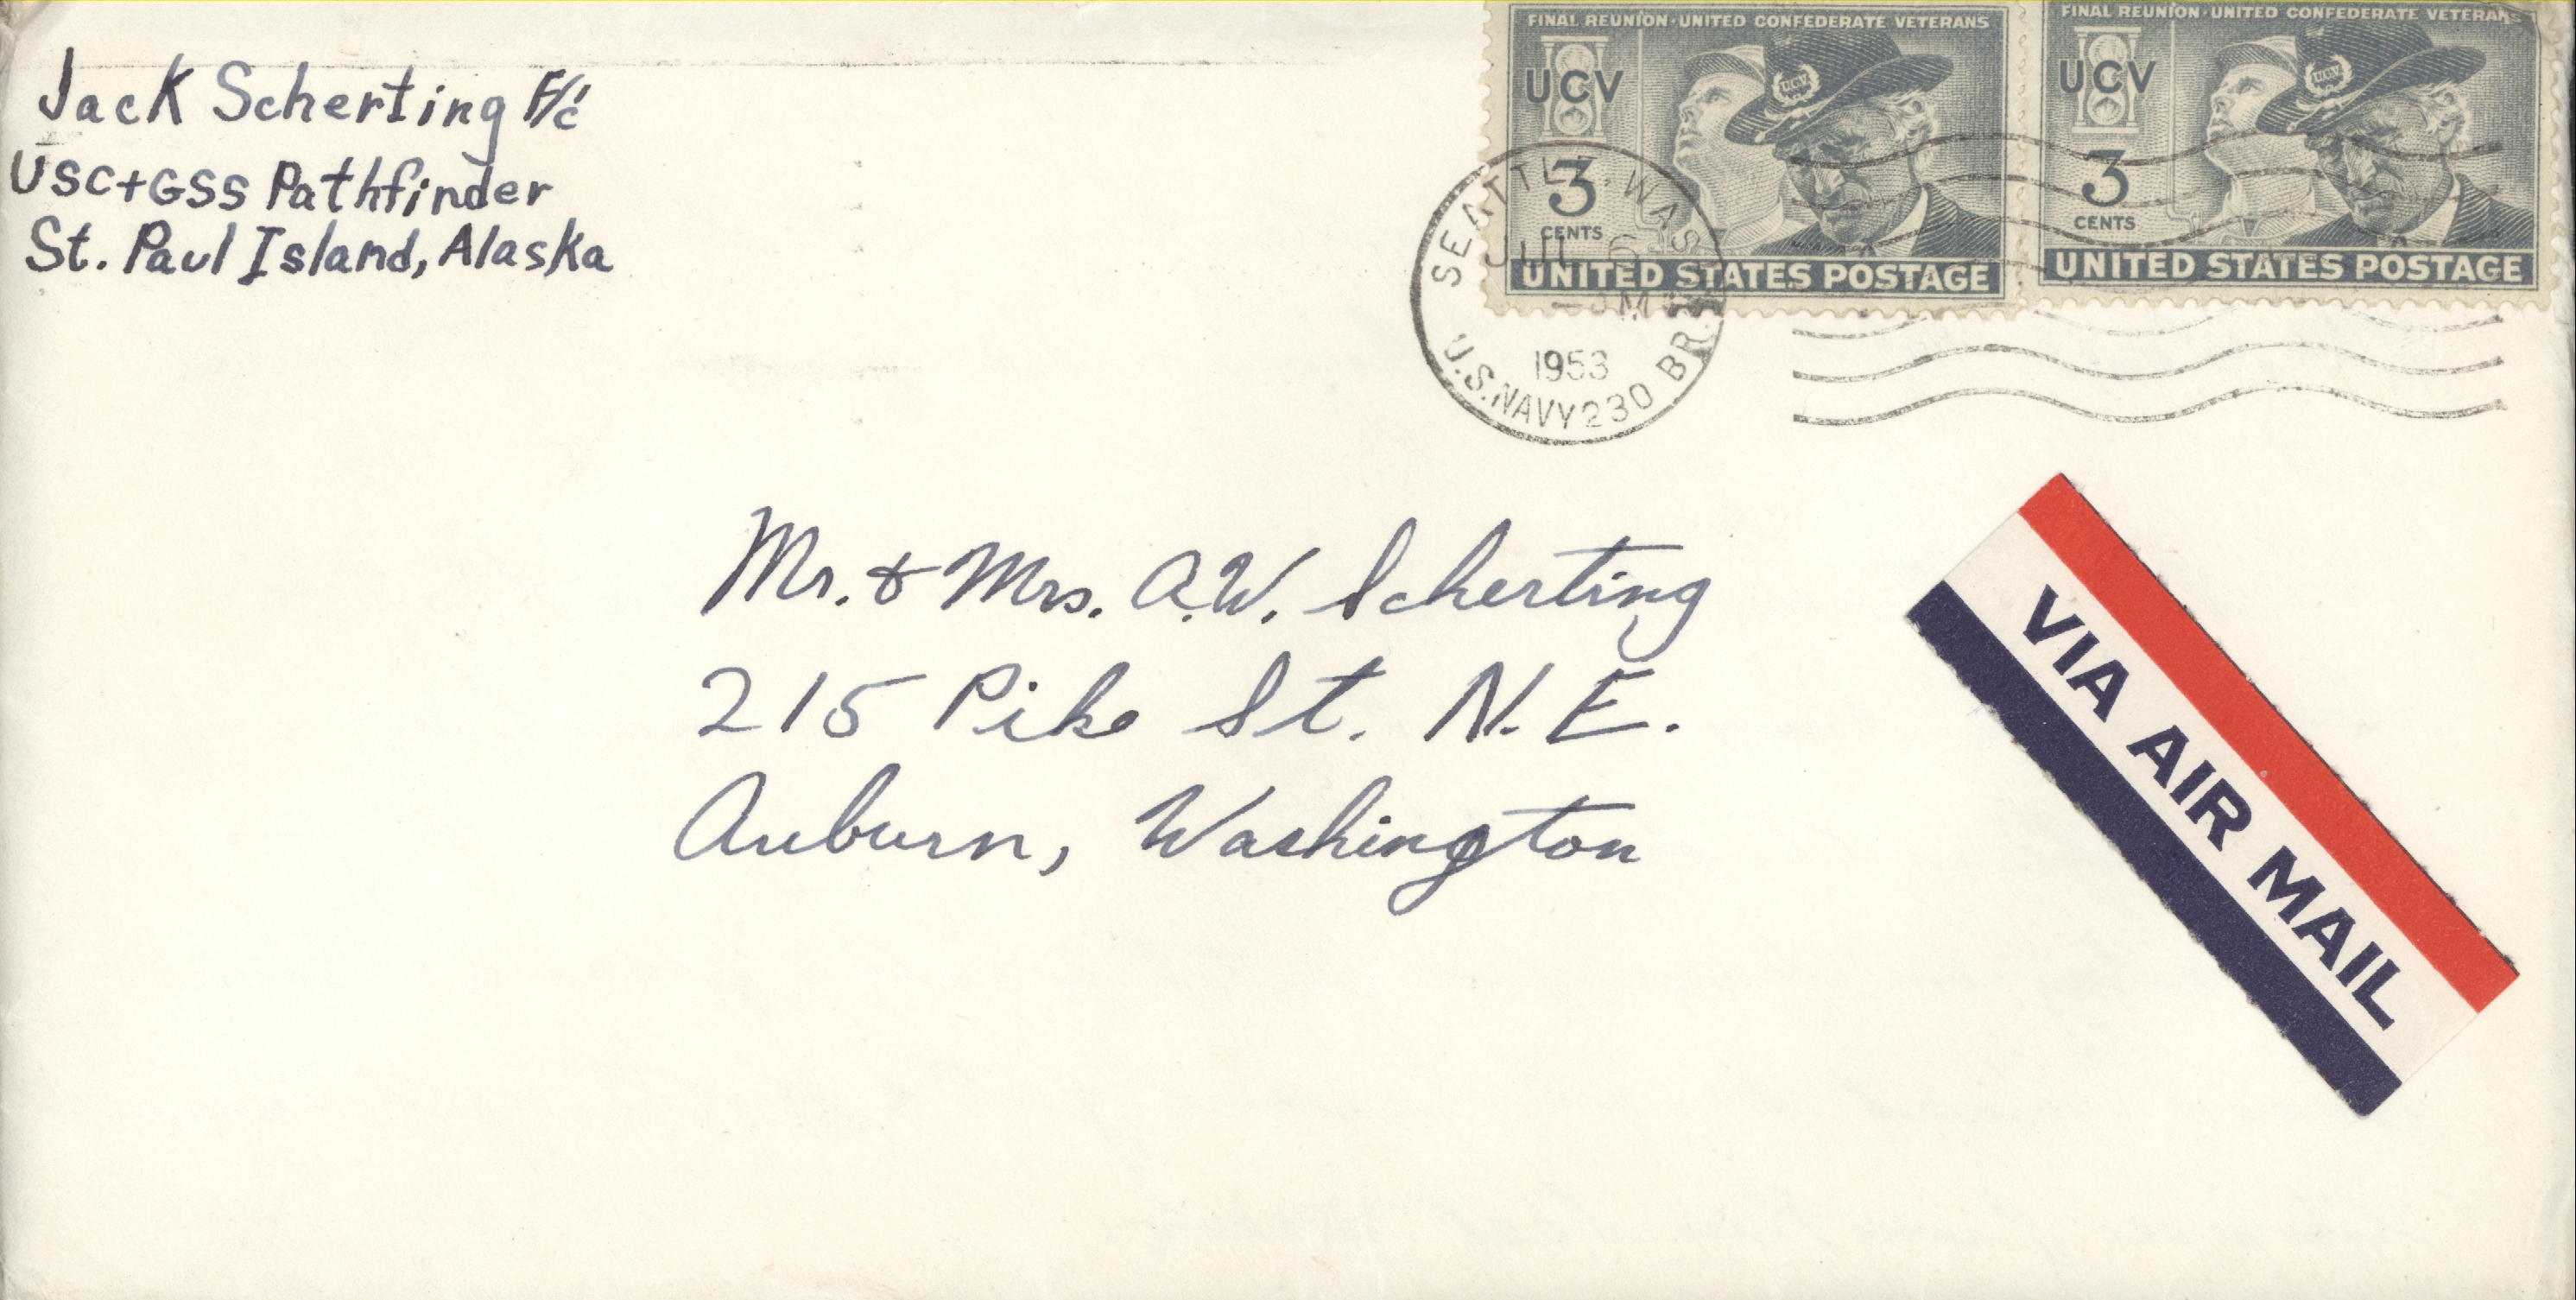 Jack Scherting F/c
USC+GSS Pathfinder
St. Paul Island, Alaska
FINAL REUNION·UNITED CONFEDERATE VETERANS
UCV
UCV
3
CENTS
UNITED STATES POSTAGE
FINAL REUNION·UNITED CONFEDERATE VETERANS
UCV
UCV
3
CENTS
UNITED STATES POSTAGE
SEATTLE, WASH.
JUL 6
1953
U.S. NAVY 230 BR.
Mr. & Mrs. A.W. Scherting
215 Pike St. N.E.
Auburn, Washington
VIA AIR MAIL